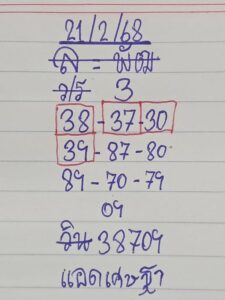 21/2/68
ส = พัฒ
ว/ร 3
38-37-30
39-87-80
89-70-79
09
วิน 38709
แอดเศษฐา